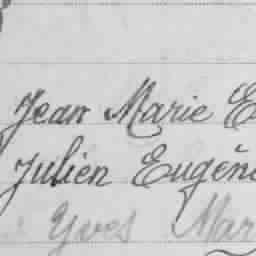 Jean Marie E
Julien Eugène
Yves Mar